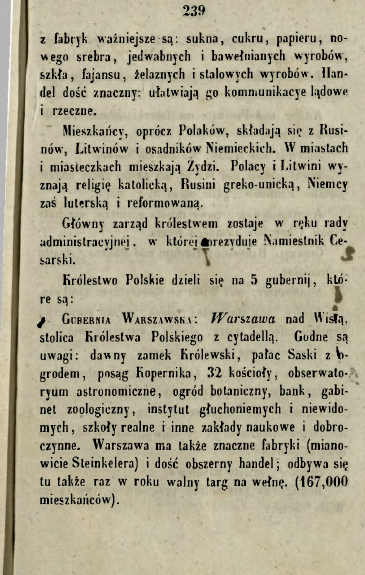 239
z fabryk ważniejsze są: sukna, cukru, papieru, no-
wego srebra, jedwabnych i bawełnianych wyrobów,
szkła, fajansu, żelaznych i stalowych wyrobów. Han-
del dość znaczny: ułatwiają go kommunikacye lądowe
i rzeczne.
Mieszkańcy, oprócz Polaków, składają się z Rusi-
nów, Litwinów i osadników Niemieckich. W miastach
i miasteczkach mieszkają Żydzi. Polacy i Litwini wy-
znają religię katolicką, Rusini greko-unicką, Niemcy
zaś luterską i reformowaną.
Główny zarząd królestwem zostaje w ręku rady
administracyjnej, w której prezyduje Namiestnik Ce-
sarski.
Królestwo Polskie dzieli się na 5 gubernij, któ-
re są:
Gubernia Warszawska: Warszawa nad Wisłą,
stolica Królestwa Polskiego z cytadellą. Godne są
uwagi: dawny zamek Królewski, pałac Saski z o-
grodem, posąg Kopernika, 32 kościoły, obserwato-
ryum astronomiczne, ogród botaniczny, bank, gabi-
net zoologiczny, instytut głuchoniemych i niewido-
mych, szkoły realne i inne zakłady naukowe i dobro-
czynne. Warszawa ma także znaczne fabryki (miano-
wicie Steinkelera) i dość obszerny handel; odbywa się
tu także raz w roku walny targ na wełnę. (167,000
mieszkańców).